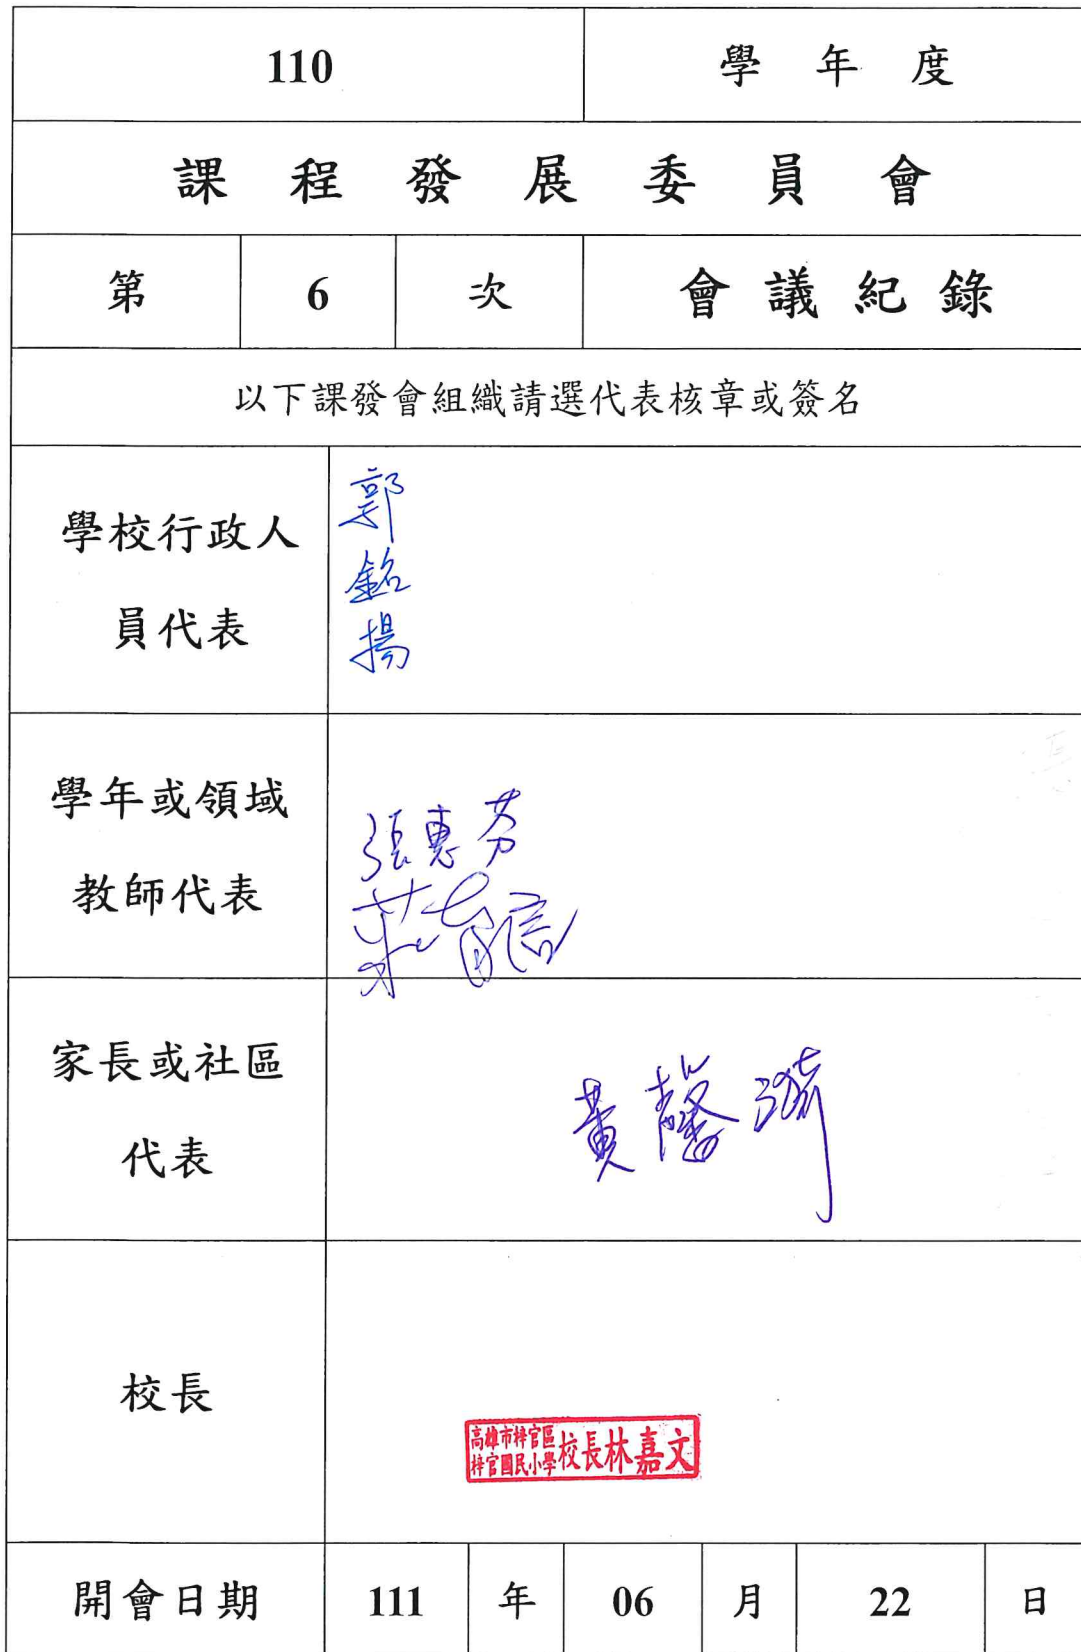 110 學年度
課程發展委員會
第 6 次 會議紀錄
以下課發會組織請選代表核章或簽名
學校行政人
員代表
郭銘揚
學年或領域
教師代表
張惠芬
莊育信
家長或社區
代表
黃馨漪
校長
高雄市梓官區
梓官國民小學
校長林嘉文
開會日期 111 年 06 月 22 日